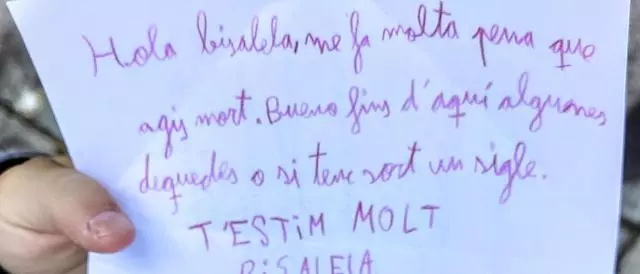 Hola bisalela, me fa molta pena que
agis mort. Bueno fins d'aquí algunes
dequedes o si tenc sort un sigle.
T'ESTIM MOLT
BISALELA